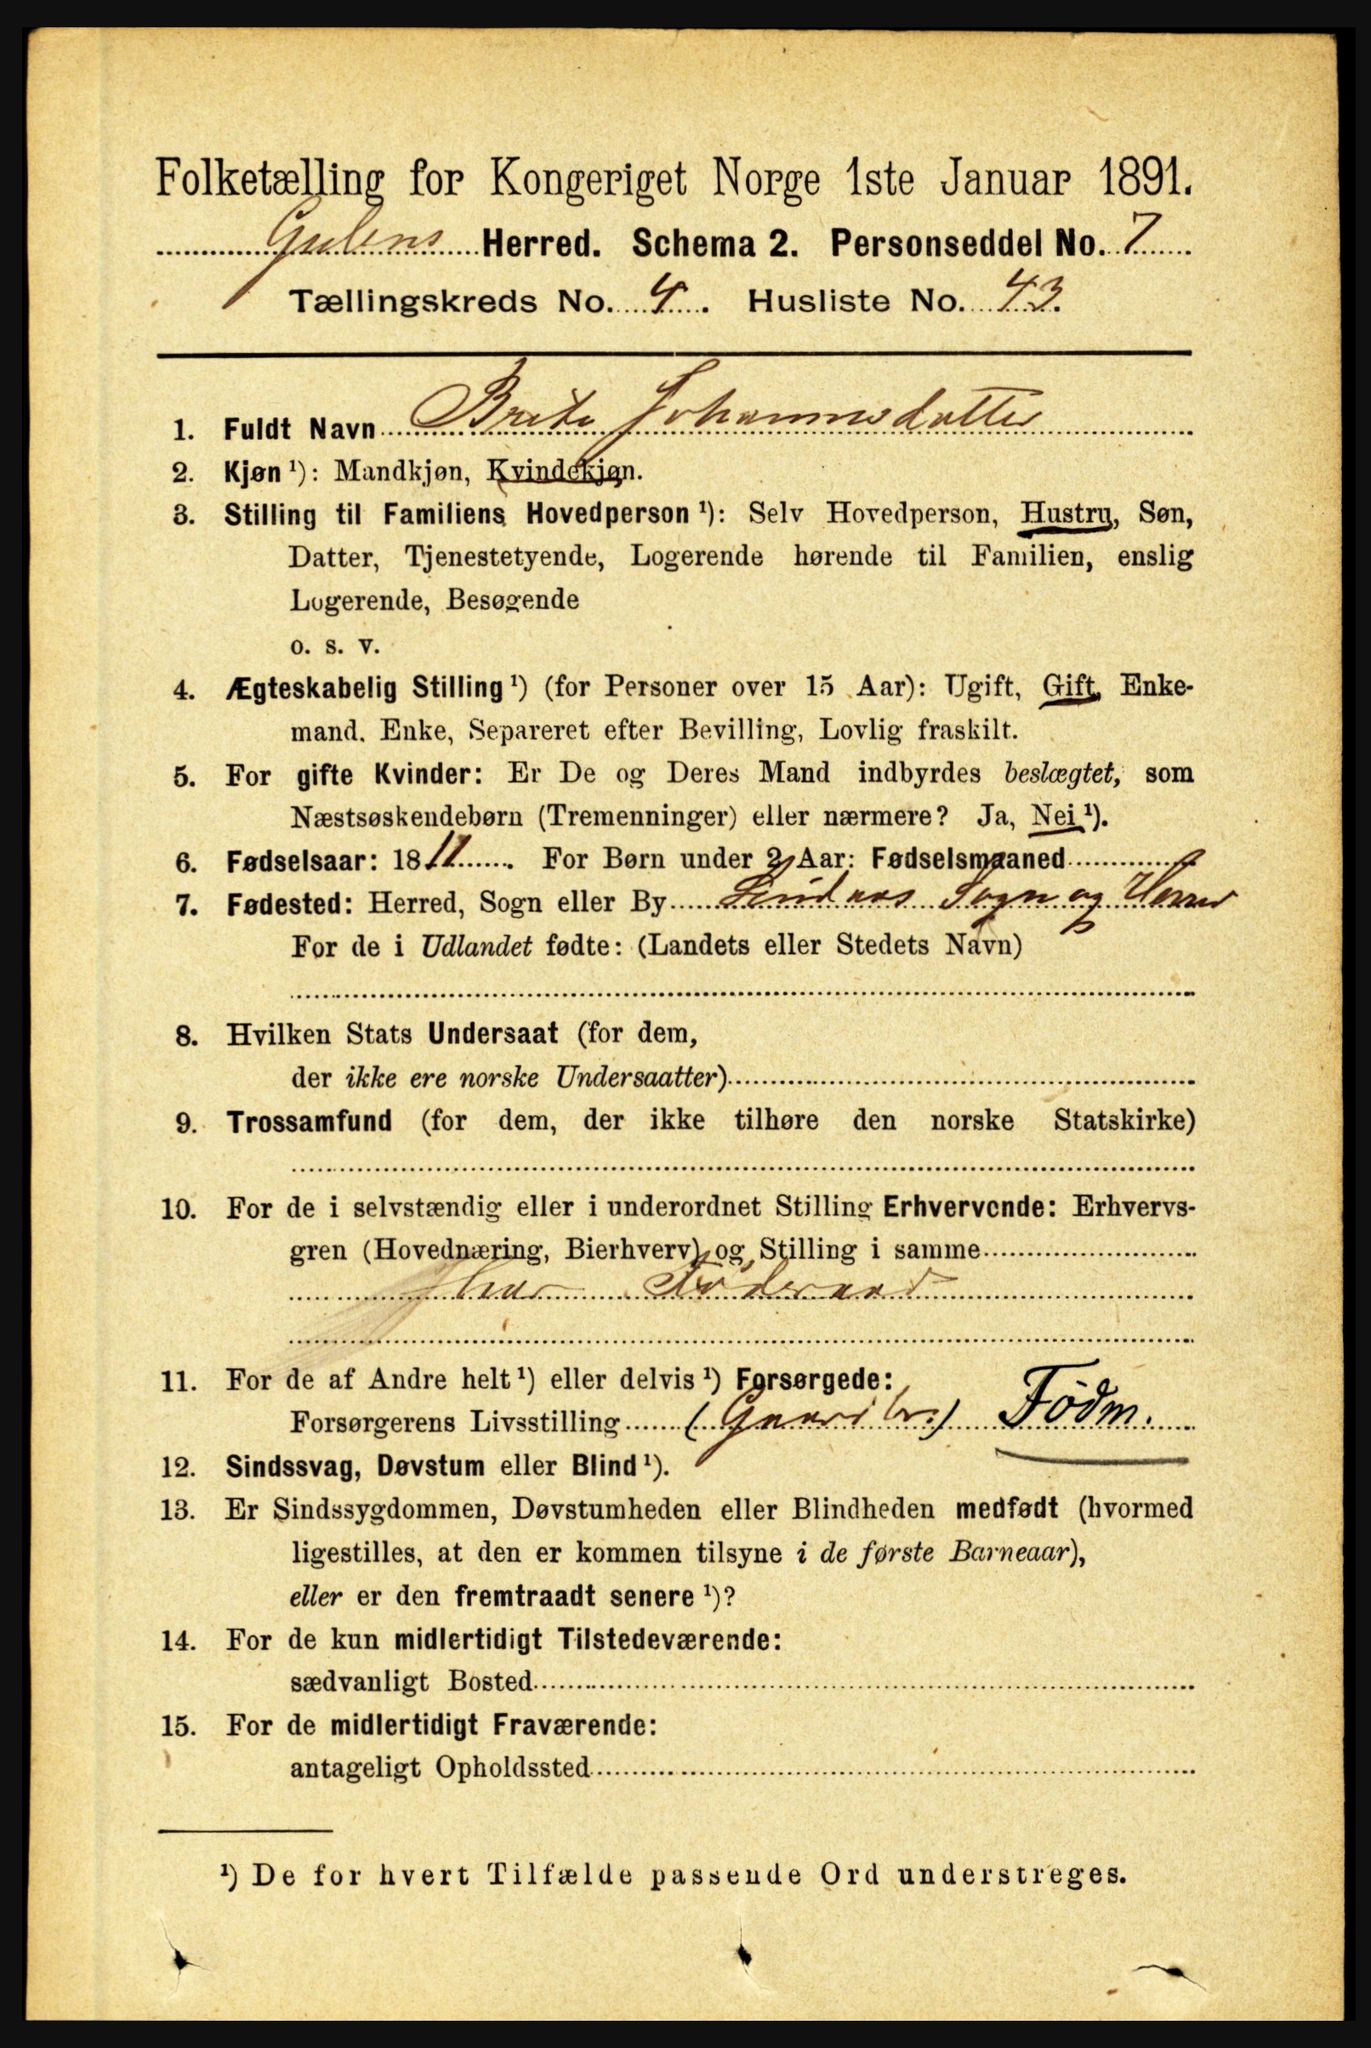 Folketælling for Kongeriget Norge 1ste Januar 1891.
Gulens Herred. Schema 2. Personseddel No. 7
Tællingskreds No. 4. Husliste No. 43.
1. Fuldt Navn Brita Johannesdatter
2. Kjøn ¹): Mandkjøn, Kvindekjøn.
3. Stilling til Familiens Hovedperson ¹): Selv Hovedperson, Hustru, Søn,
Datter, Tjenestetyende, Logerende hørende til Familien, enslig
Logerende, Besøgende
o. s. v.
4. Ægteskabelig Stilling ¹) (for Personer over 15 Aar): Ugift, Gift, Enke-
mand, Enke, Separeret efter Bevilling, Lovlig fraskilt.
5. For gifte Kvinder: Er De og Deres Mand indbyrdes beslægtet, som
Næstsøskendebørn (Tremenninger) eller nærmere? Ja, Nei ¹).
6. Fødselsaar: 1811 . For Børn under 2 Aar: Fødselsmaaned
7. Fødested: Herred, Sogn eller By Lindaas Sogn og Herred
For de i Udlandet fødte: (Landets eller Stedets Navn)
8. Hvilken Stats Undersaat (for dem,
der ikke ere norske Undersaatter)
9. Trossamfund (for dem, der ikke tilhøre den norske Statskirke)
10. For de i selvstændig eller i underordnet Stilling Erhvervende: Erhvervs-
gren (Hovednæring, Bierhverv) og Stilling i samme
har Føderaad
11. For de af Andre helt ¹) eller delvis ¹) Forsørgede:
Forsørgerens Livsstilling (Gaardbr.) Fødm.
12. Sindssvag, Døvstum eller Blind ¹).
13. Er Sindssygdommen, Døvstumheden eller Blindheden medfødt (hvormed
ligestilles, at den er kommen tilsyne i de første Barneaar),
eller er den fremtraadt senere ¹)?
14. For de kun midlertidigt Tilstedeværende:
sædvanligt Bosted
15. For de midlertidigt Fraværende:
antageligt Opholdssted
¹) De for hvert Tilfælde passende Ord understreges.